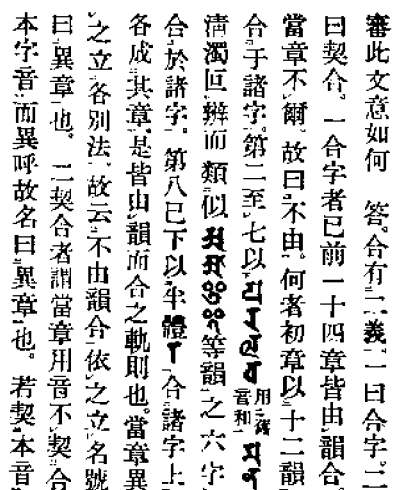 審此文意如何 答合有二義一曰合字二
曰契合。一合字者已前一十四章皆由韻合。
當章不爾。故曰不由。何者初章以十二韻
合于諸字。第二至七以
清濁叵辨而類似 等韻之六字
合於諸字。第八已下以半體 合諸字上
各成其章。是皆由韻而合之軌則也。當章異
之立各別法。故云不由韻合依之立名號
曰異章也。二契合者謂當章用音不契合
本字音而異呼故名曰異章也。若契本音